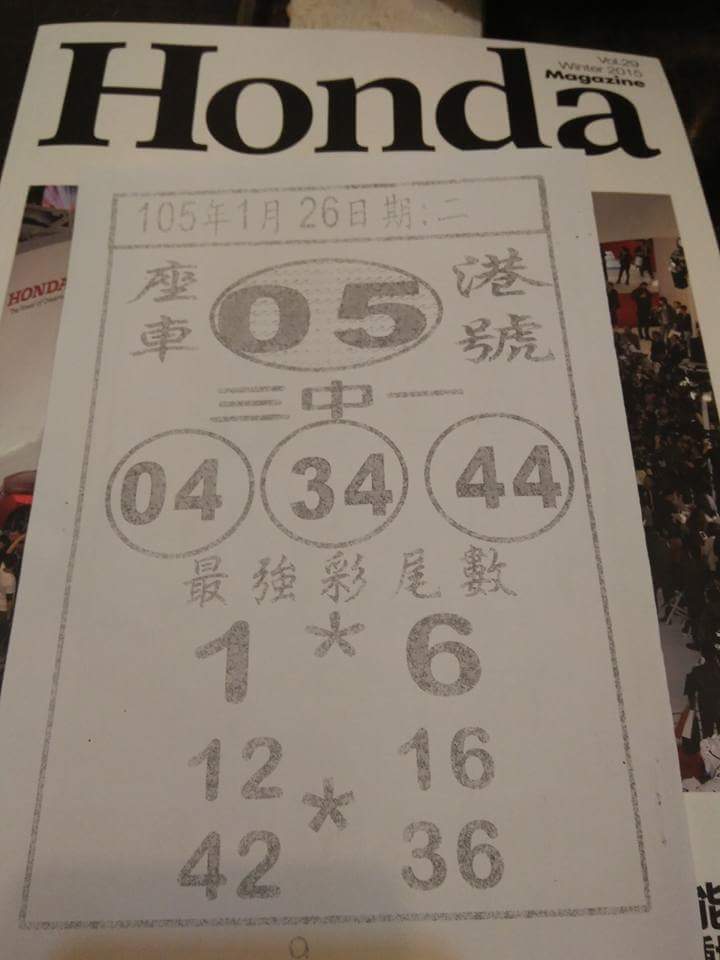 Honda
Vol.29
Winter 2015
Magazine
HONDA
105年1月26日期:二
座車 05 港號
三中一
04 34 44
最強彩尾數
1 * 6
12 16
*
42 36
9
能